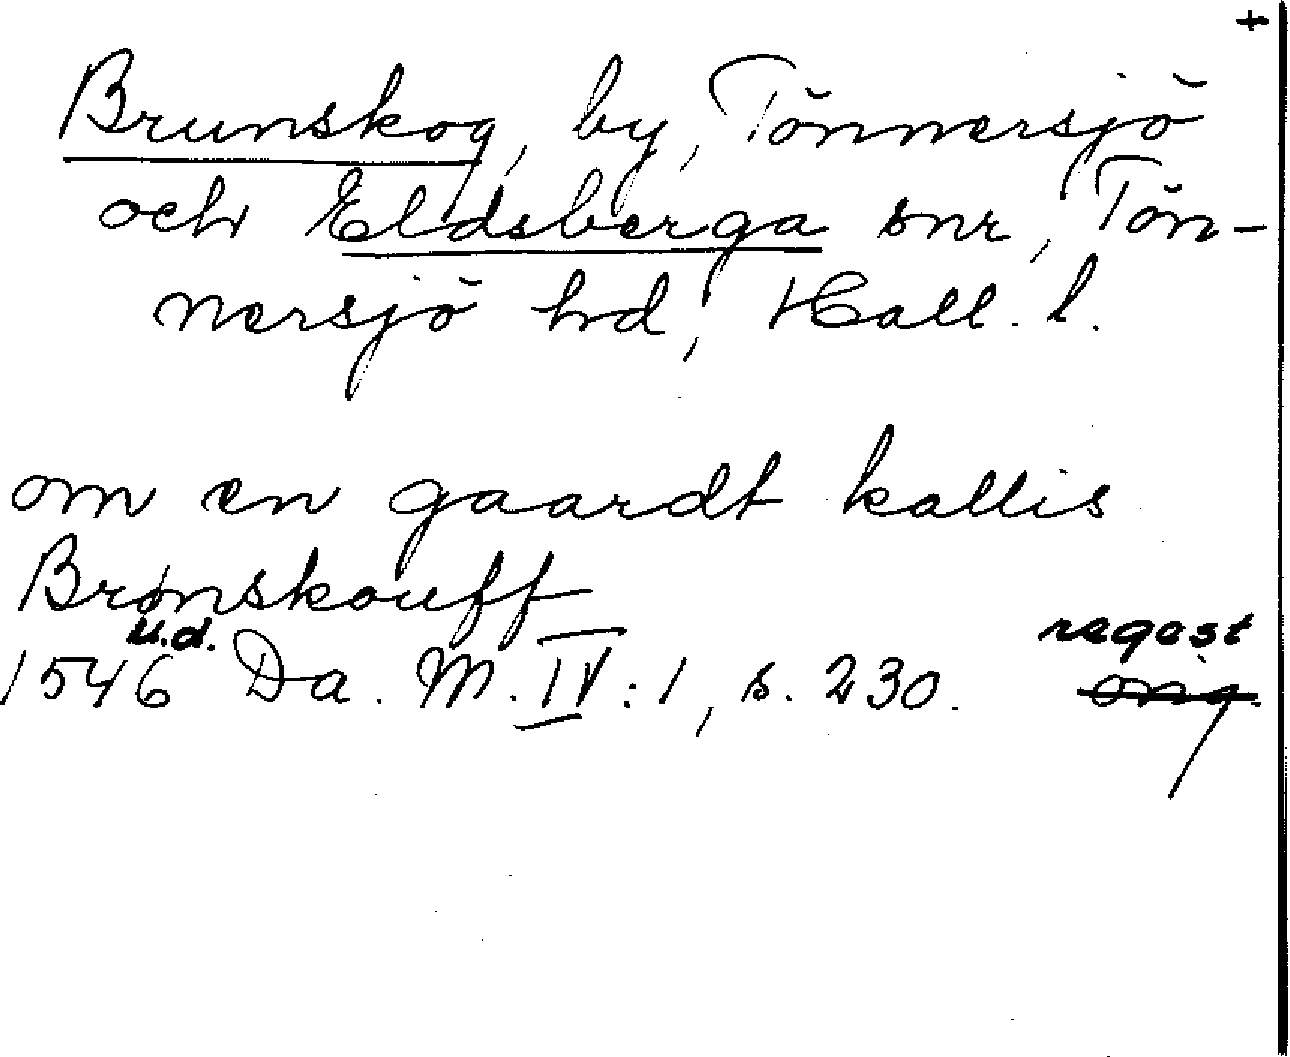 +
Brunskog, by, Tönnersjö
och Eldsberga snr, Tön-
nersjö hd, Hall. l.
om en gaardt kallis
Brønskouff
1546 u.d. Da. M. IV:1, s. 230. regest
orig.